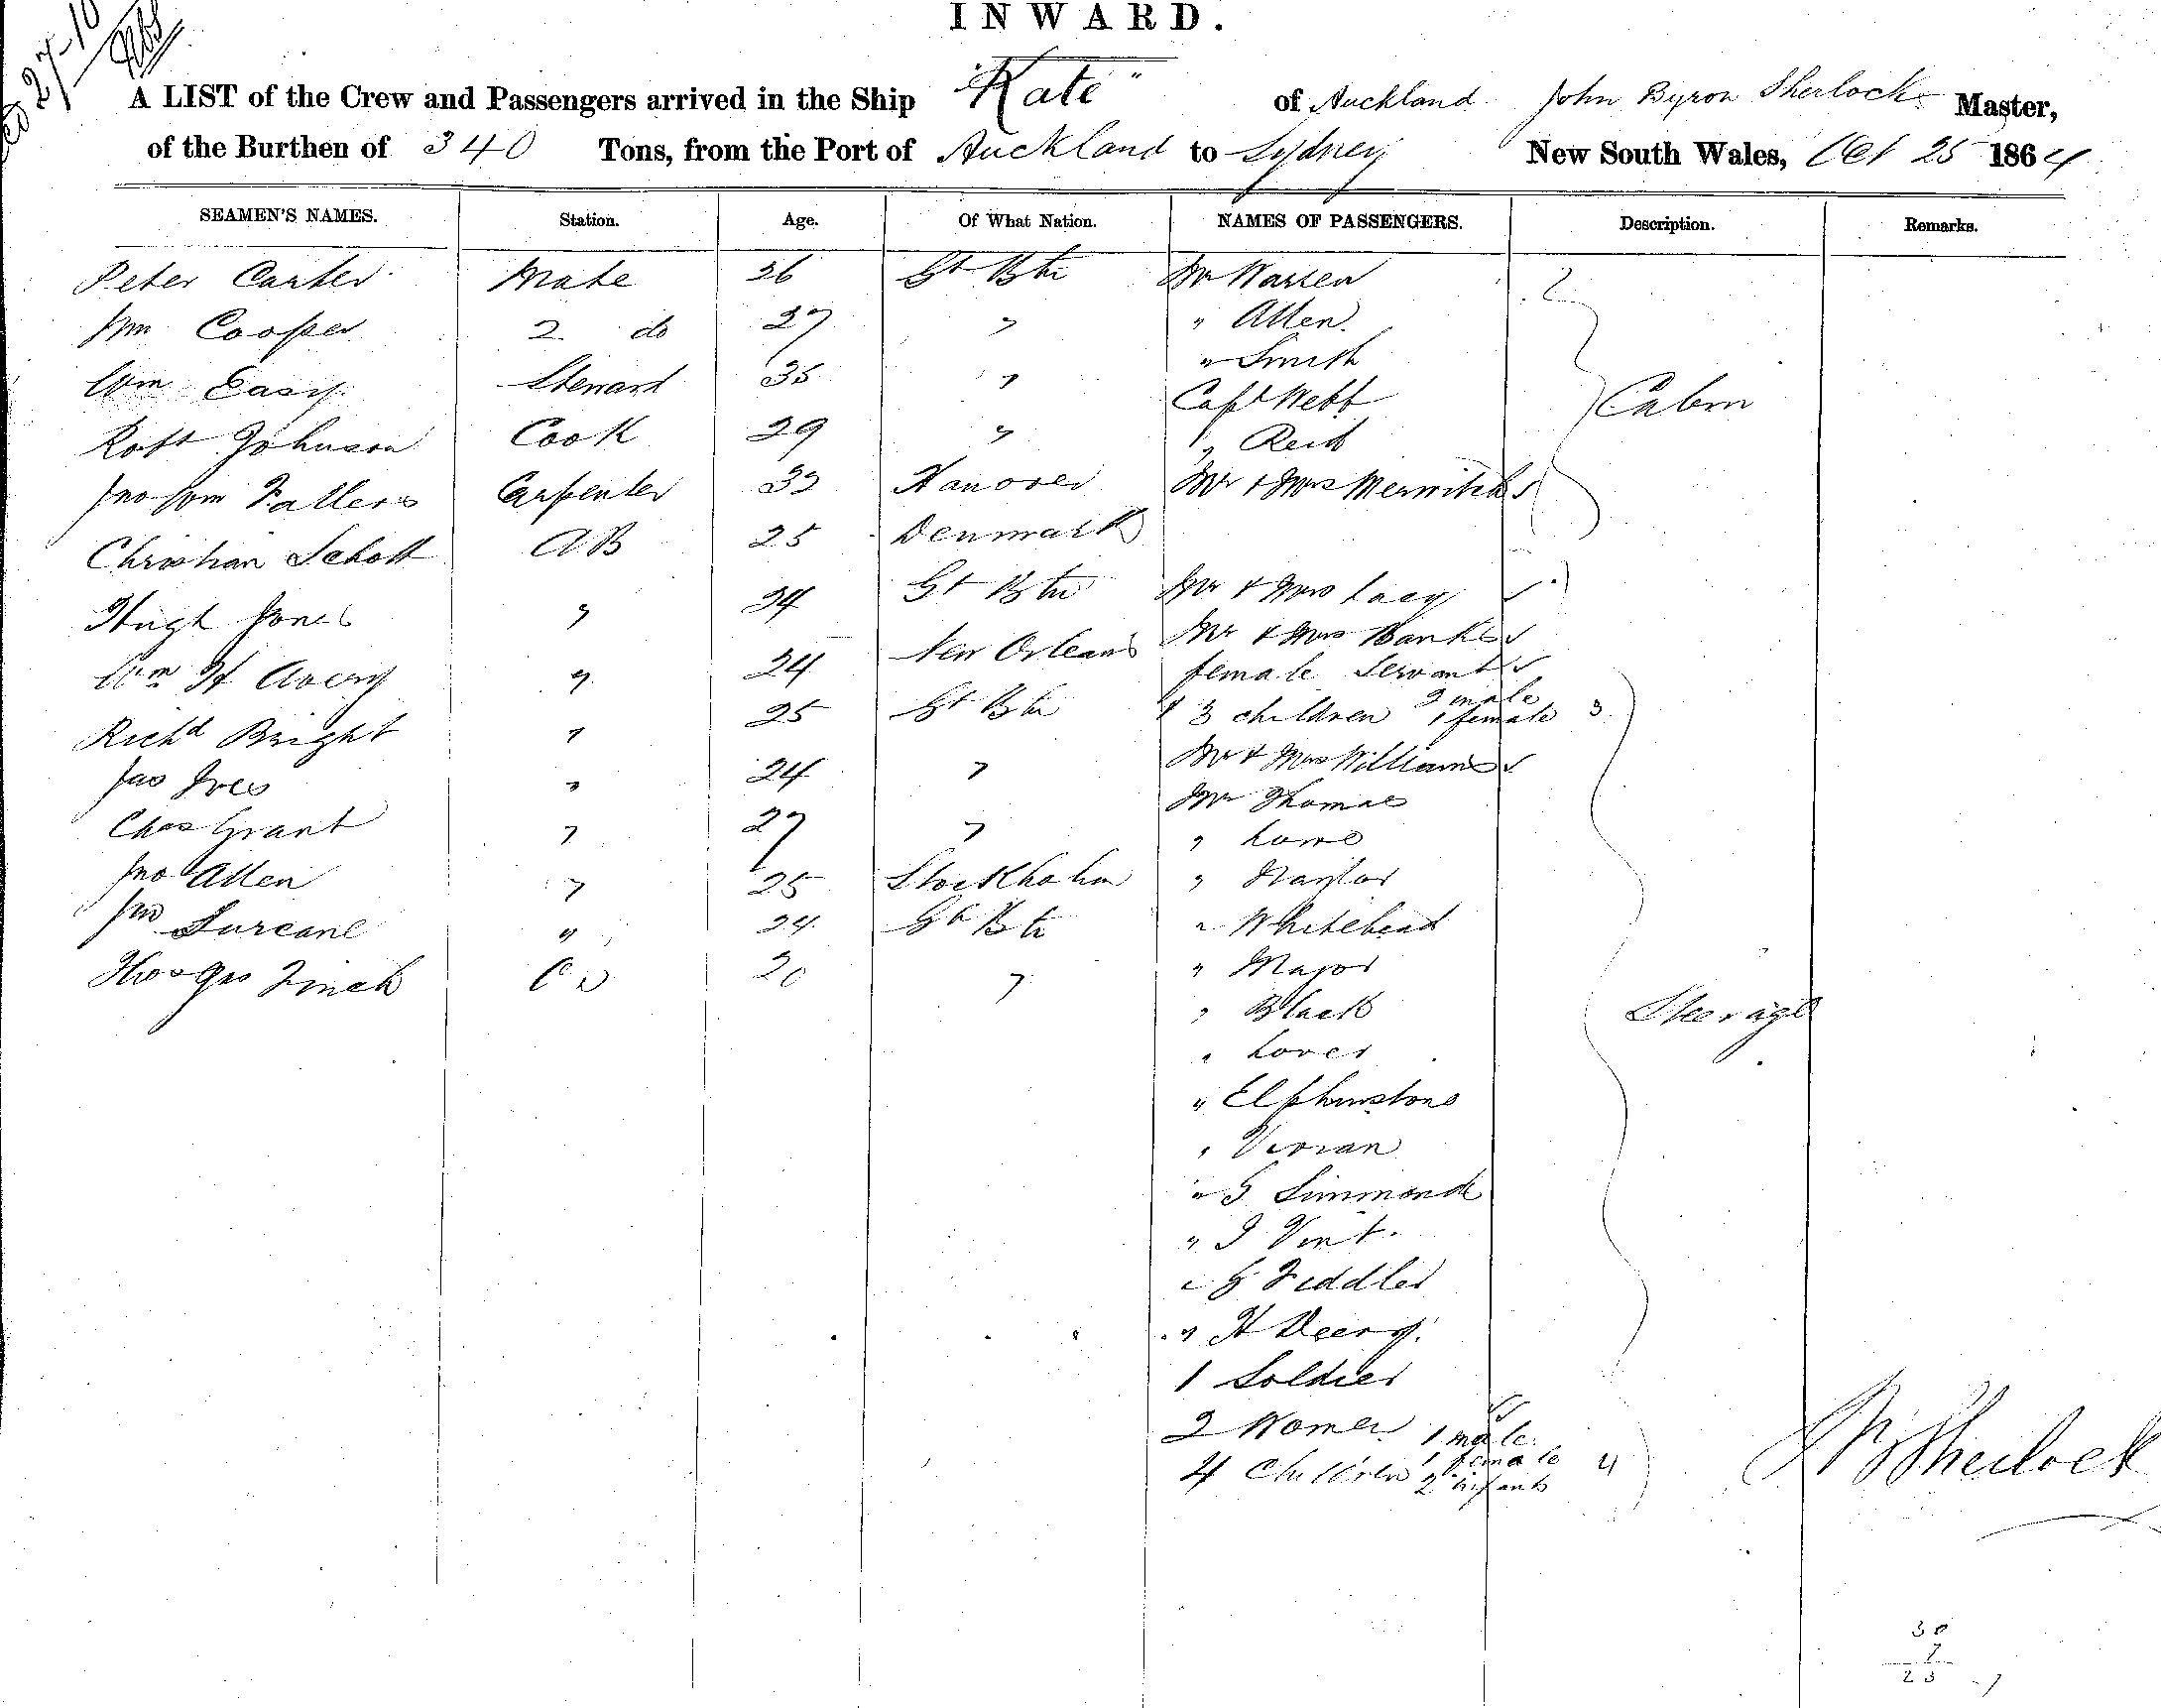 INWARD.
27-10
A LIST of the Crew and Passengers arrived in the Ship "Kate" of Auckland John Byron Sherlock Master,
of the Burthen of 340 Tons, from the Port of Auckland to Sydney New South Wales, Oct 25 1864
SEAMEN'S NAMES. Station. Age. Of What Nation. NAMES OF PASSENGERS. Description. Remarks.
Peter Carter Mate 26 Gt Btn Mr Warren
Cooper 2 do 27 " " Allen
" Smith
Wm Easy Steward 35 " Capt Webb Cabin
Robt Johnson Cook 29 " " Reid
Jno Wm Fallers Carpenter 33 Hanover Mr & Mrs
Christian Schott AB 25 Denmark
Hugh Jones " 24 Gt Btn Mr & Mrs Lacy
Wm H Avery " 24 New Orleans Mr & Mrs Banks
female Servant
Richd Bright " 25 Gt Btn & 3 children 2 male 1 female 3
Jas Ives " 24 " Mr & Mrs Williams
Mr Thomas
Chas Grant " 27 " " Lowe
Jno Allen " 25 Stockholm " Naylor
Jno " 24 Gt Btn " Whitehead
Thos Geo Finch 20 " " Major
" Black Steerage
" Lover
" Elphinstone
" Vivian
" G Simmonds
" J Vint
" G Fiddler
" H Deery
1 Soldier
2 Women
4 Children 1 male 1 female 2 infants 4
J B Sherlock
30
7
23 - 7